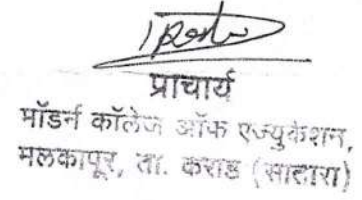 प्राचार्य
मॉडर्न कॉलेज ऑफ एज्युकेशन,
मलकापूर, ता. कराड (सातारा)